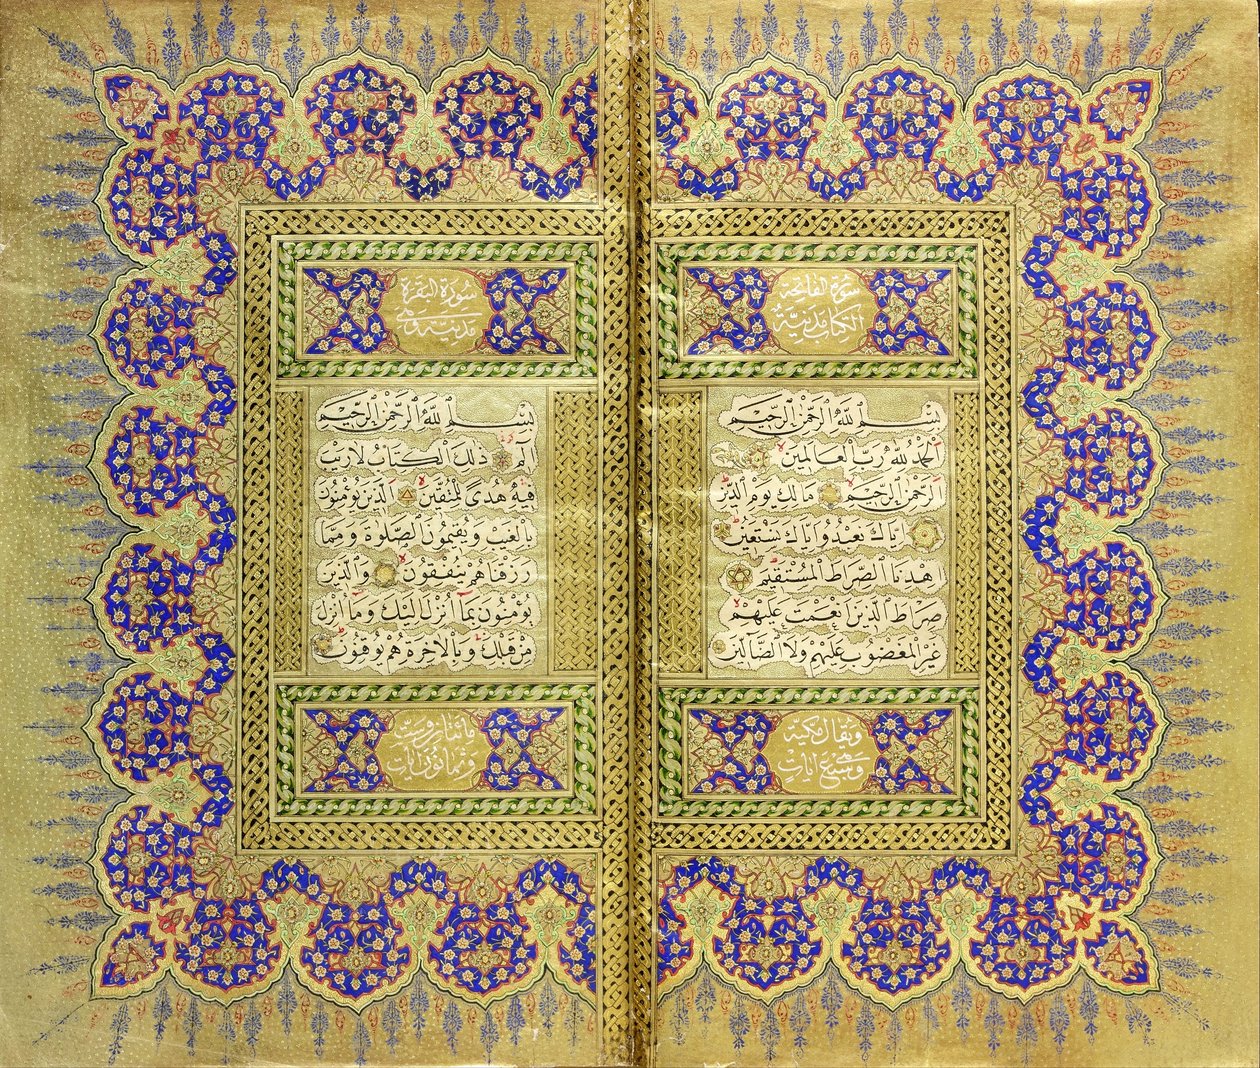 سورة الفاتحة
الكتاب مدنية
بسم الله الرحمن الرحيم
الحمد لله رب العالمين
الرحمن الرحيم مالك يوم الدين
اياك نعبد واياك نستعين
اهدنا الصراط المستقيم
صراط الذين انعمت عليهم
غير المغضوب عليهم ولا الضالين
ويقال مكية
وهي سبع ايات
سورة البقرة
مدنية وهي
بسم الله الرحمن الرحيم
الم ذلك الكتاب لا ريب
فيه هدى للمتقين الذين يؤمنون
بالغيب ويقيمون الصلوة ومما
رزقناهم ينفقون والذين
يؤمنون بما انزل اليك وما انزل
من قبلك وبالاخرة هم يوقنون
مائتان وست
وثمانون ايات